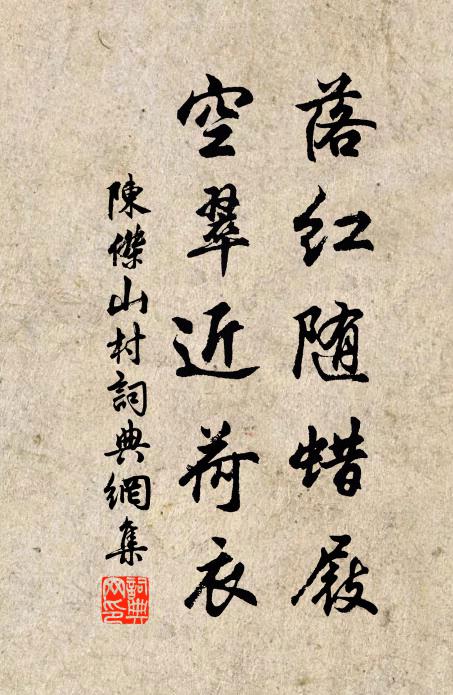 落红随蜡屐
空翠近荷衣
陳傑山村詞典網集
詞典网印